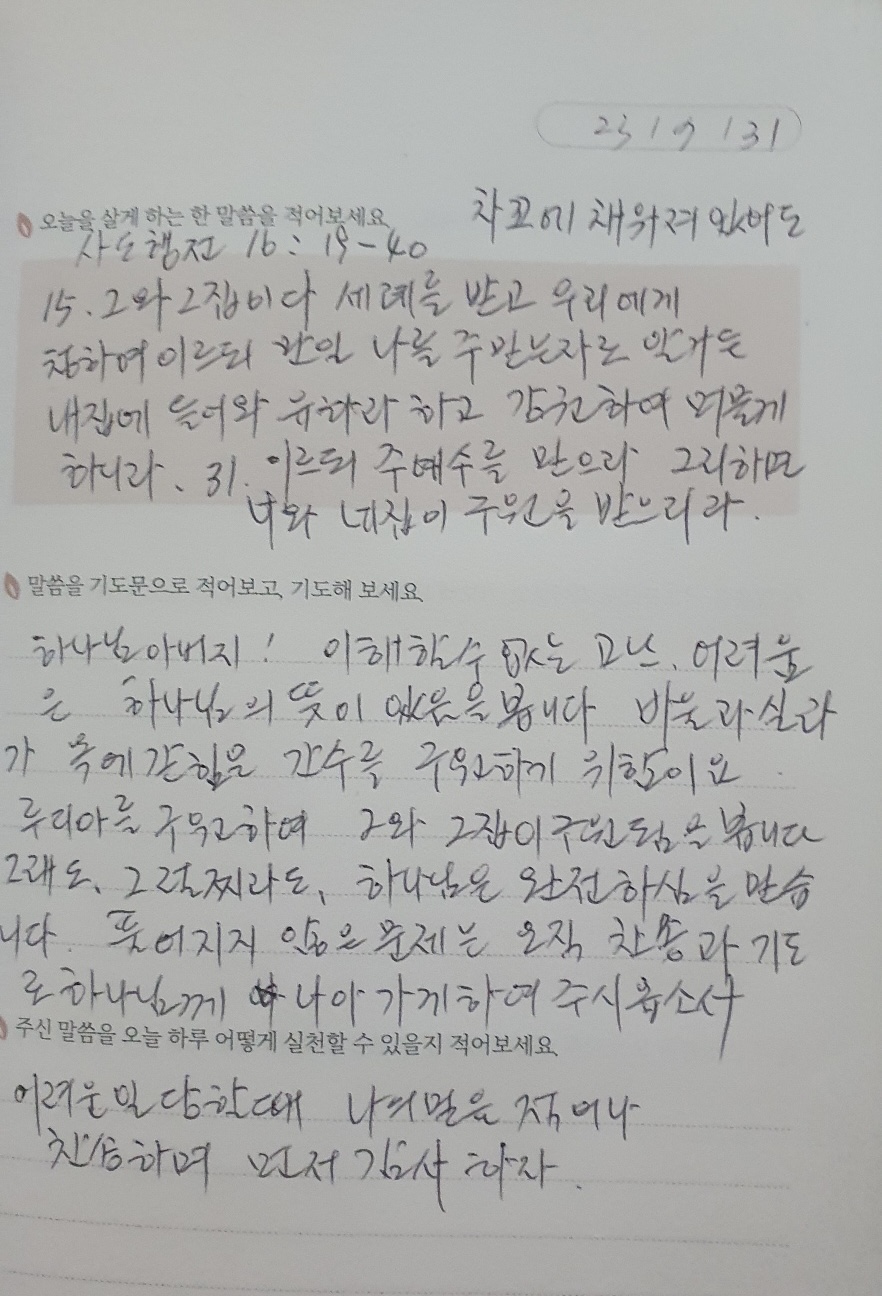 23 1 9 131
오늘을 살게 하는 한 말씀을 적어보세요. 차꼬에 채워져 있어도
사도행전 16 : 19-40
15. 그와 그집이다 세례를 받고 우리에게
청하여이르되 만일 나를 주믿는자로 알거든
내집에 들어와 유하라 하고 강권하여 머물게
하니라. 31. 이르되 주예수를 믿으라 그리하면
너와 네집이 구원을 받으리라.
말씀을 기도문으로 적어보고, 기도해 보세요.
하나님아버지! 이해할수 없는 고난, 어려움
은 하나님의 뜻이 있음을봅니다 바울과실라
가 옥에갇힘은 간수를 구원하기 위함이요.
루디아를 구원하여 그와 그집이구원됨을 봅니다
그래도, 그럴찌라도, 하나님은 완전하심을 믿습
니다. 풀어지지 않은문제는 오직 찬송과 기도
로하나님께 나아가게하여주시옵소서
주신 말씀을 오늘 하루 어떻게 실천할 수 있을지 적어보세요.
어려운일 당할때 나의말을 적어나
찬송하며 먼저 감사 하자.